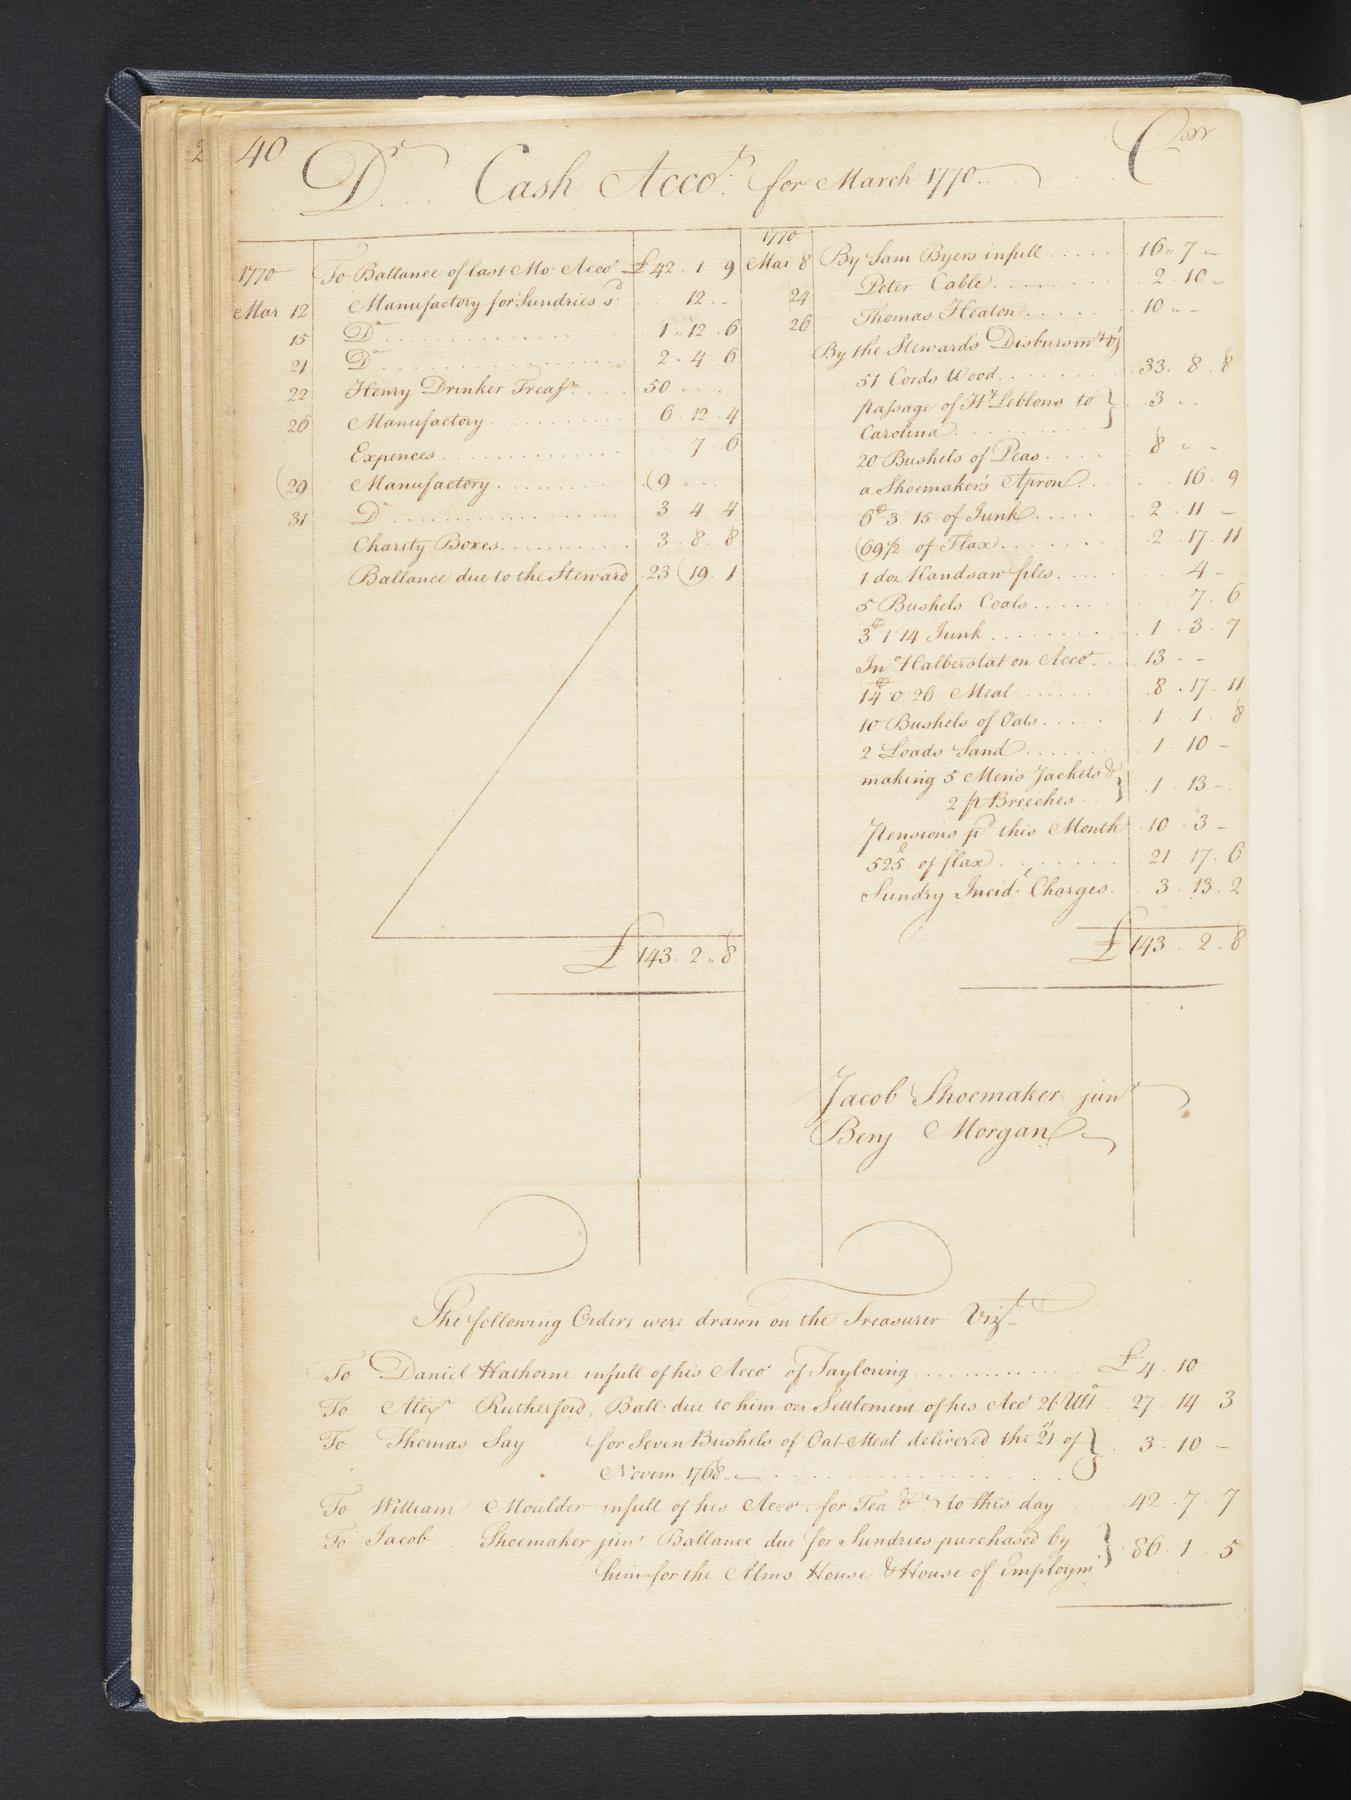 40
Dr Cash Acco.t for March 1770 Contr
1770 To Ballance of last Mo: Acco.t £42 . 1 . 9
Mar 12 Manufactory for Sundries sd: 12 ..
15 Do 1 .. 12 . 6
21 Do 2 . 4 . 6
22 Henry Drinker Treasr 50
26 Manufactory 6 . 12 . 4
Expences 7 . 6
29 Manufactory 9
31 Do 3 4 4
Charity Boxes 3 . 8 . 8
Ballance due to the Steward 23 19 . 1
£ 143 . 2 .. 8
1770
Mar 8 By Sam Byers infull 16 .. 7 ..
24 Peter Cable 2 . 10 -
26 Thomas Heaton 10 .. -
By the Stewards Disbursmts vz
51 Cords Wood 33 . 8 . 8
passage of Hy Leblons to } 3 - -
Carolina
20 Bushels of Peas 8 - -
a Shoemakers Apron 16 . 9
6 C 3 15 of Junk 2 . 11 -
69 1/2 of Flax 2 . 17 . 11
1 doz Handsaw files 4 -
5 Bushels Coals 7 . 6
3 C 1 14 Junk 1 . 3 . 7
Jno Halberstat on Acco.t 13 - -
14 C 0 26 Meal 8 . 17 . 11
10 Bushels of Oats 1 . 1 . 8
2 Loads Sand 1 . 10 -
making 5 Mens Jackets & } 1 . 13 -
2 pr Breeches
Pensions pd this Month 10 . 3 -
525 of flax 21 . 17 . 6
Sundry Incidt Charges 3 . 13 . 2
£ 143 . 2 . 8
Jacob Shoemaker junr
Benj Morgan
The following Orders were drawn on the Treasurer Vizt
To Daniel Hathorne infull of his Acco.t of Tayloring £ 4 . 10
To Alexr Rutherford, Ball: due to him on Settlement of his Acct 26 Ulto 27 . 14 . 3
To Thomas Say for Seven Bushels of Oat-Meal delivered the 21st of } 3 . 10 -
Novem 1768
To William Moulder infull of his Acco.t for Tea &c to this day 42 . 7 . 7
To Jacob Shoemaker junr Ballance due for Sundries purchased by } 86 . 1 . 5
him for the Alms House & House of Employmt